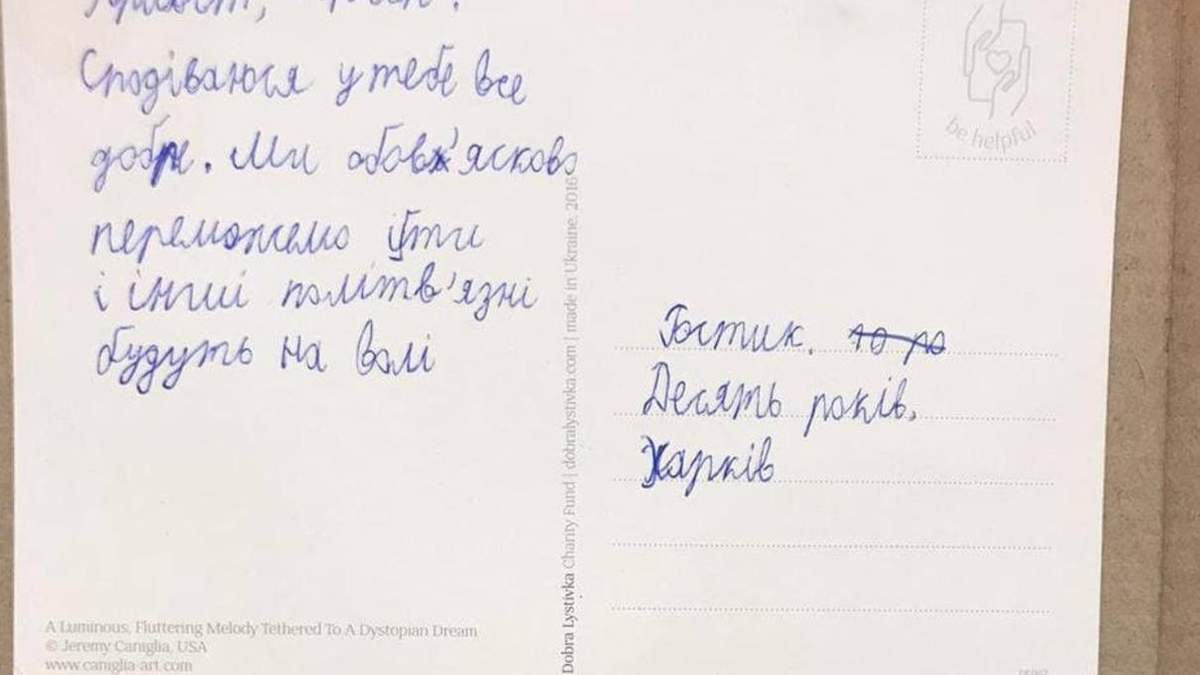 Сподіваюся у тебе все
добре. Ми обовʼясково
переможемо і ти
і інші політв'язні
будуть на волі
be helpful
Гостик. 10 ро
Десять років,
Харків
Dobra Lystivka Charity Fund | dobralystivka.com | made in Ukraine. 2016
A Luminous, Fluttering Melody Tethered To A Dystopian Dream
© Jeremy Caniglia, USA
www.caniglia-art.com